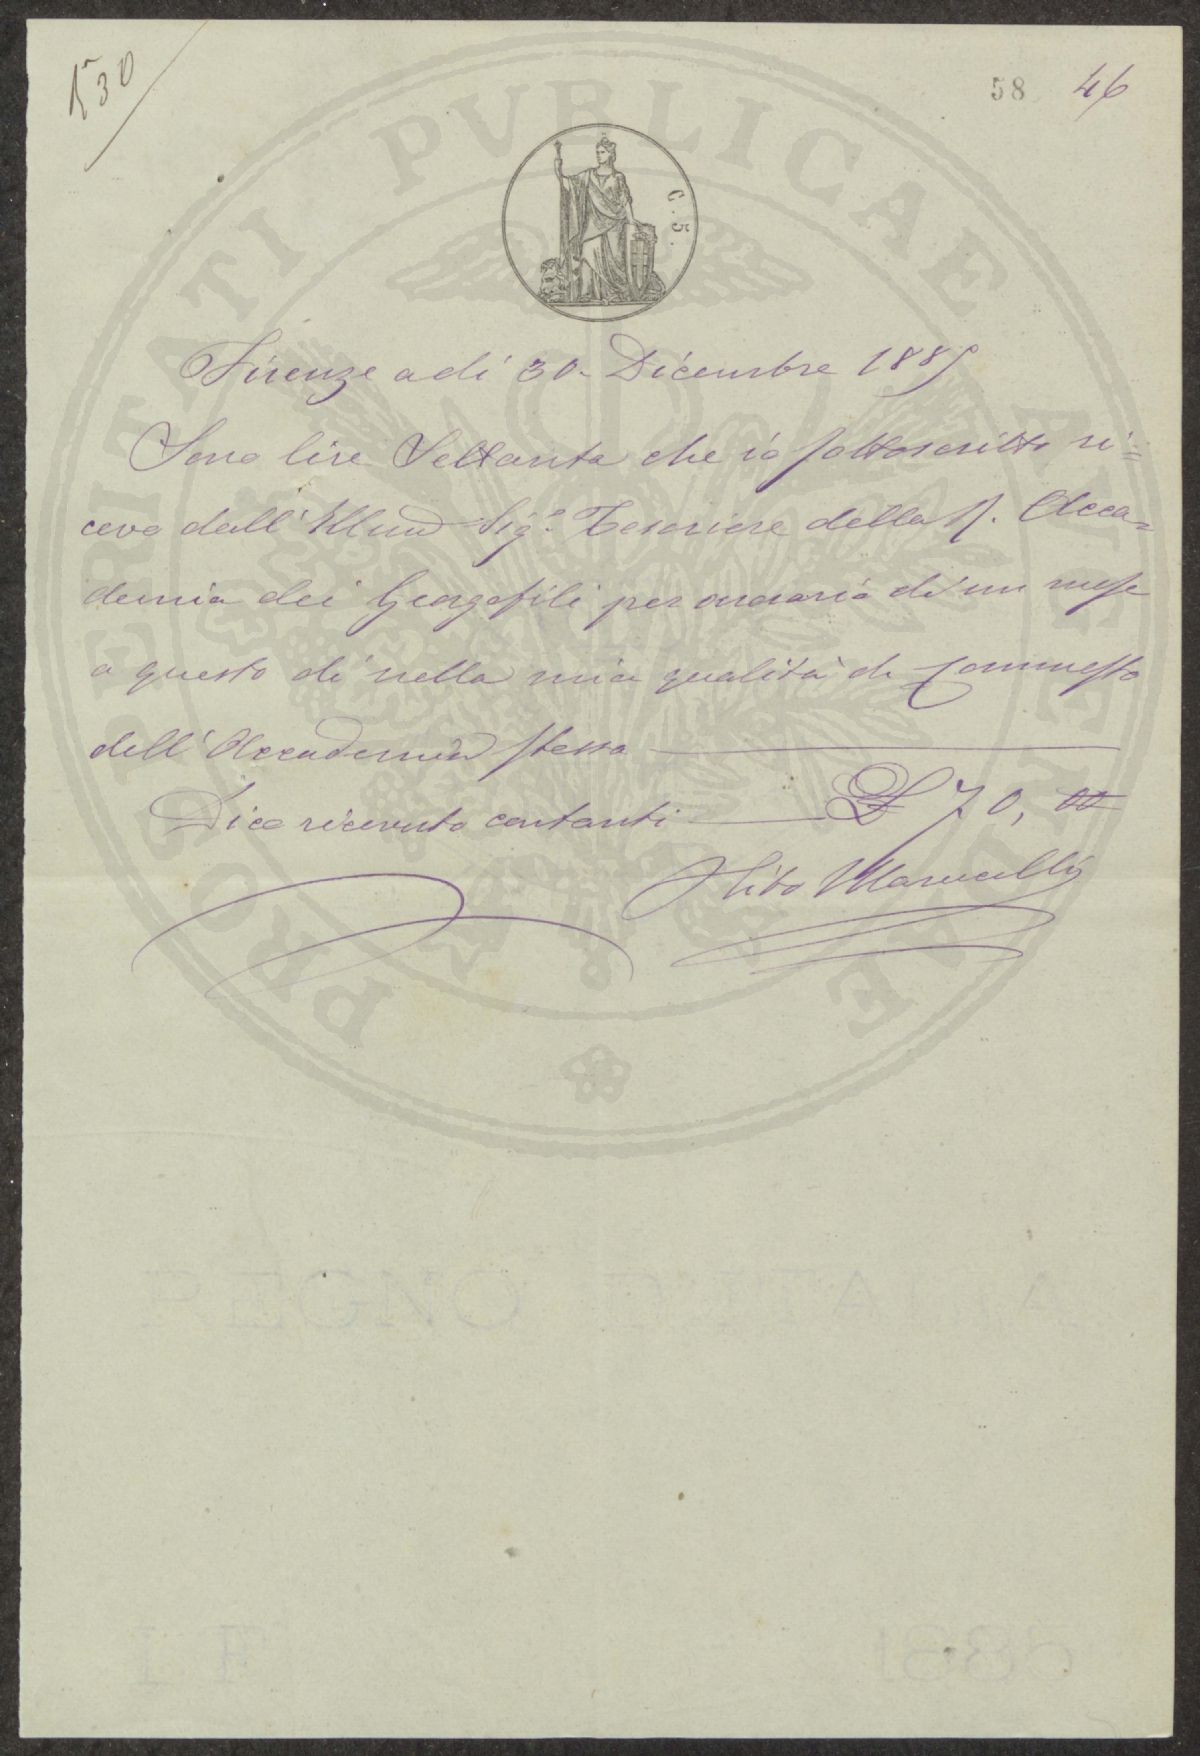 530
58 46
C. 5.
PROSPERITATI PVBLICAE AVGENDAE
Firenze a dì 30. Dicembre 1885
Sono lire Settanta che io sottoscritto ri=
cevo dall' Illmo Sigr. Tesoriere della R. Acca=
demia dei Georgofili per onorario di un mese
a questo dì nella mia qualità di Commesso
dell' Accademia stessa
Dico ricevuto contanti £ 70, 00
Marucelli
REGNO D'ITALIA